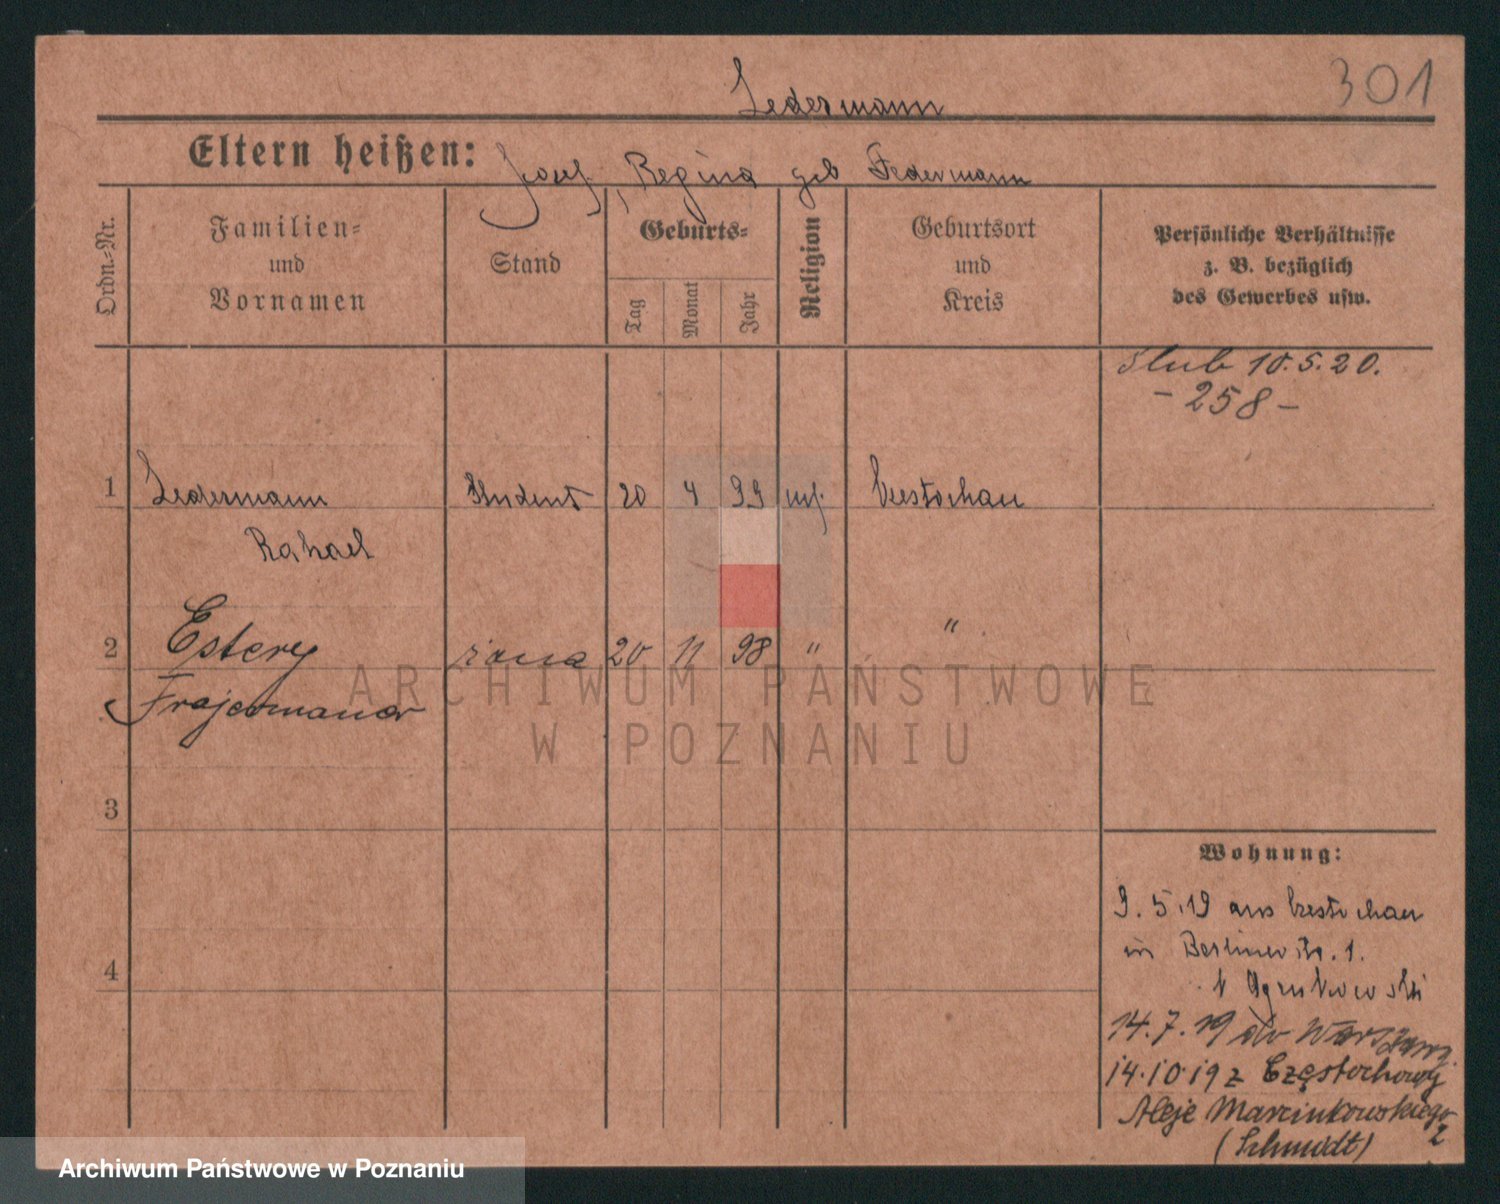 301
Ledermann
Eltern heißen: Josef, Regina geb Federmann
Ordn.-Nr.
Familien-
und
Vornamen
Stand
Geburts-
Tag
Monat
Jahr
Religion
Geburtsort
und
Kreis
Persönliche Verhältnisse
z. B. bezüglich
des Gewerbes usw.
Ślub 10.5.20.
- 258 -
1 Ledermann Student 20 4 99 Czestochau
Rahael
2 Estery żona 20 11 98 " "
Frajermauer
3
4
Wohnung:
9.5.19 aus Czestochau
in Berlinerstr. 1.
14.7.19 do Warszawy
14.10.19 z Częstochowy
Aleje Marcinkowskiego
2
(Schmidt)
ARCHIWUM PAŃSTWOWE
W POZNANIU
Archiwum Państwowe w Poznaniu